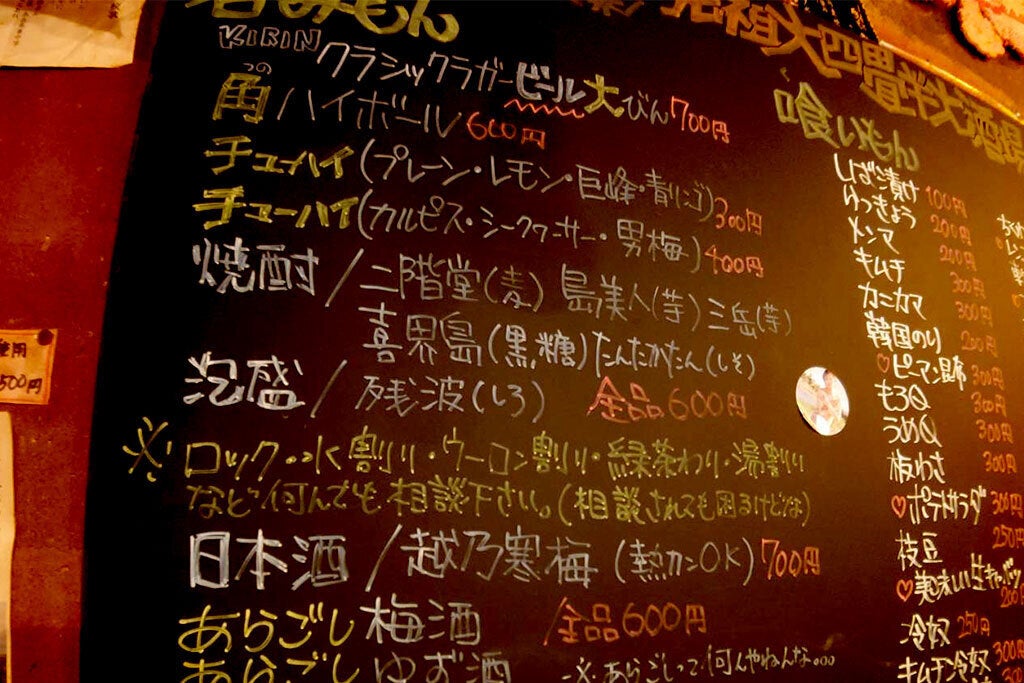 呑みもん
KIRIN クラシックラガービール大びん700円
角ハイボール600円
チューハイ(プレーン・レモン・巨峰・青リンゴ)300円
チューハイ(カルピス・シークヮーサー・男梅)400円
焼酎/二階堂(麦)島美人(芋)三岳(芋)
喜界島(黒糖)たんたかたん(しそ)
泡盛/残波(しろ) 全品600円
※ロック・水割り・ウーロン割り・緑茶わり・湯割り
など何んでも相談下さい。(相談されても困るけどな)
日本酒/越乃寒梅(熱カンOK)700円
あらごし梅酒 全品600円
あらごしゆず酒 ※あらごしって何んやねんな。。。
元祖大四畳半大酒場
喰いもん
しば漬け 100円
らっきょう 200円
メンマ 200円
キムチ 300円
カニカマ 300円
韓国のり 200円
♡ピーマン昆布 300円
もろQ 300円
うめQ 300円
板わさ 300円
♡ポテトサラダ 300円
枝豆 250円
♡美味しい生キャベツ 200円
冷奴 250円
キムチ冷奴 300円
500円